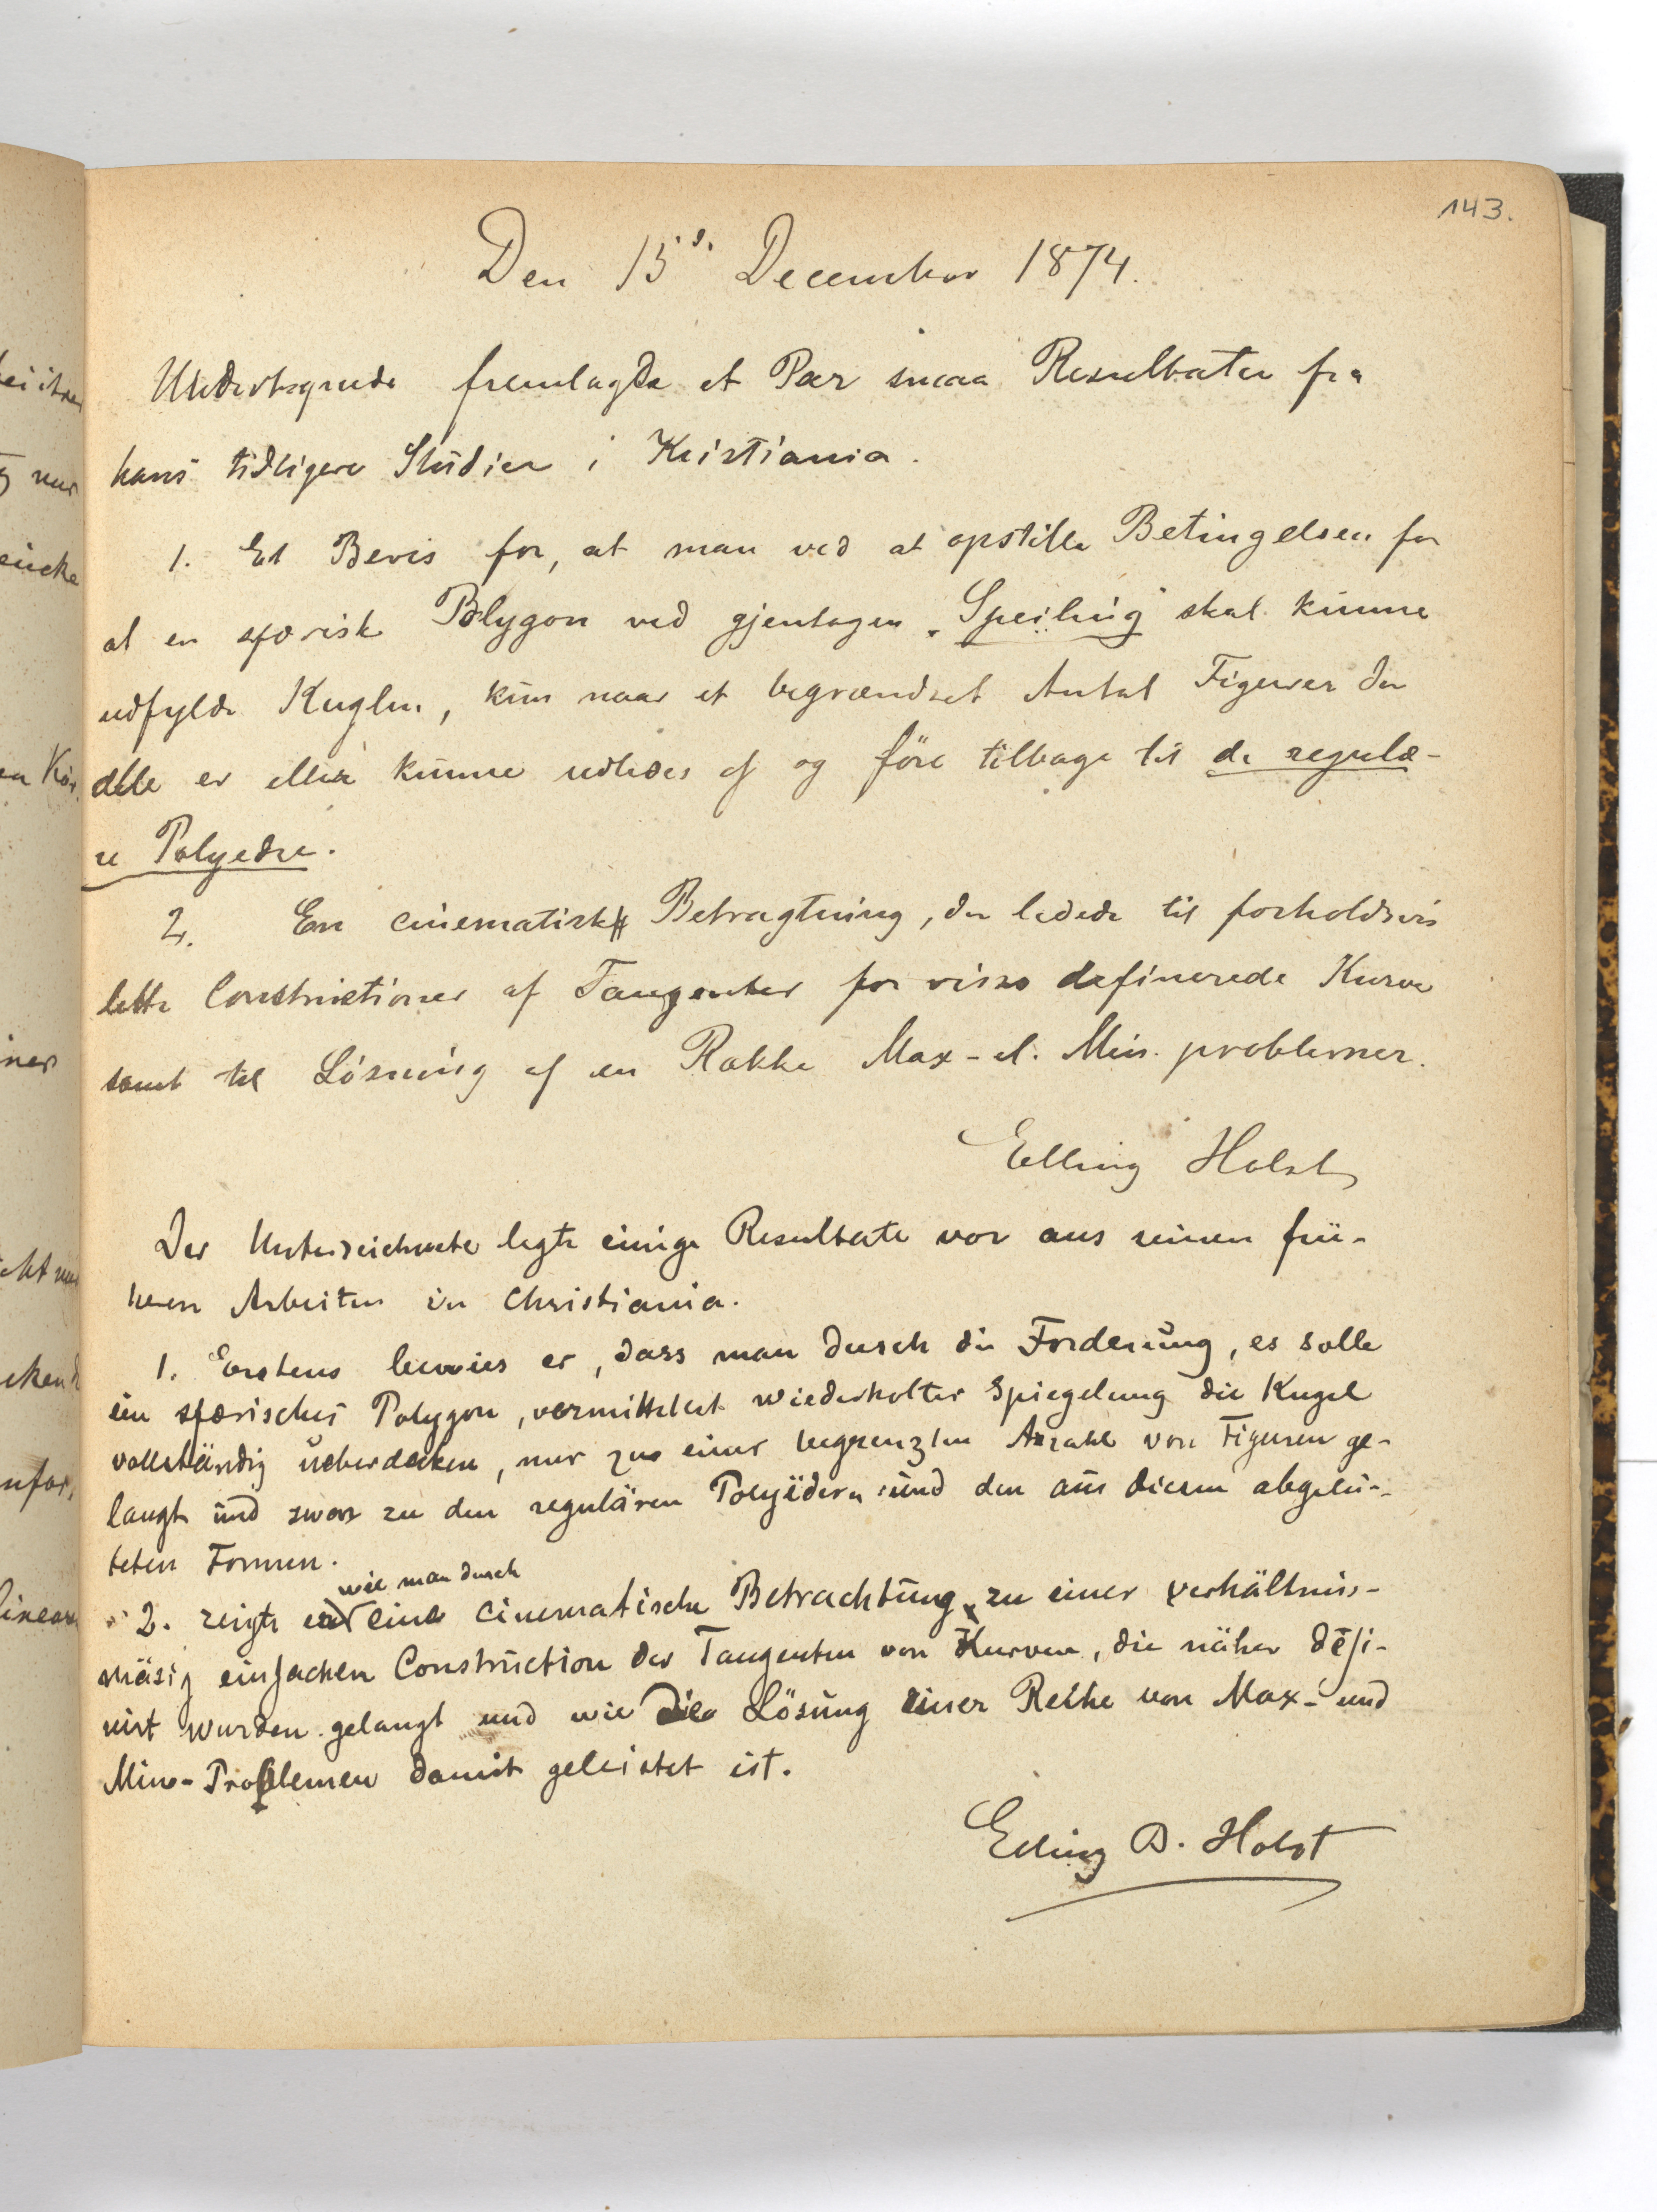 143.
Den 15d. December 1874.
Undertegnede fremlagde et Par smaa Resultater fra
hans tidligere Studier i Kristiania.
1. Et Bevis for, at man ved at opstille Betingelsen for
at en sfærisk Polygon ved gjentagen „Speiling" skal kunne
udfylde Kuglen, kun naar et begrændset Antal Figurer der
alle er eller kunne udledes af og före tilbage til de regulæ-
re Polyedre.
2. En cinematisk Betragtning, der ledede til forholdsvis
lette Constructioner af Tangenter for visse definerede Kurve
samt til Lösning af en Række Max- el. Min. problemer.
Elling Holst
Der Unterzeichnete legte einige Resultate vor aus seinen frü-
heren Arbeiten in Christiania.
1. Erstens bewies er, dass man durch die Forderung, es solle
ein sfærisches Polygon, vermittelst wiederholter Spiegelung die Kugel
vollständig ueberdecken, nur zu einer begrenzten Anzahl von Figuren ge-
langt und zwar zu den regulären Polyëdern und den aus diesen abgelei-
teten Formen.
2. zeigte er wie man durch eine cinematische Betrachtung zu einer verhältniss-
mäsig einfachen Construction der Tangenten von Kurven, die näher defi-
nirt wurden gelangt und wie die Lösung einer Reihe von Max- und
Min-Problemen damit geleistet ist.
Elling B. Holst